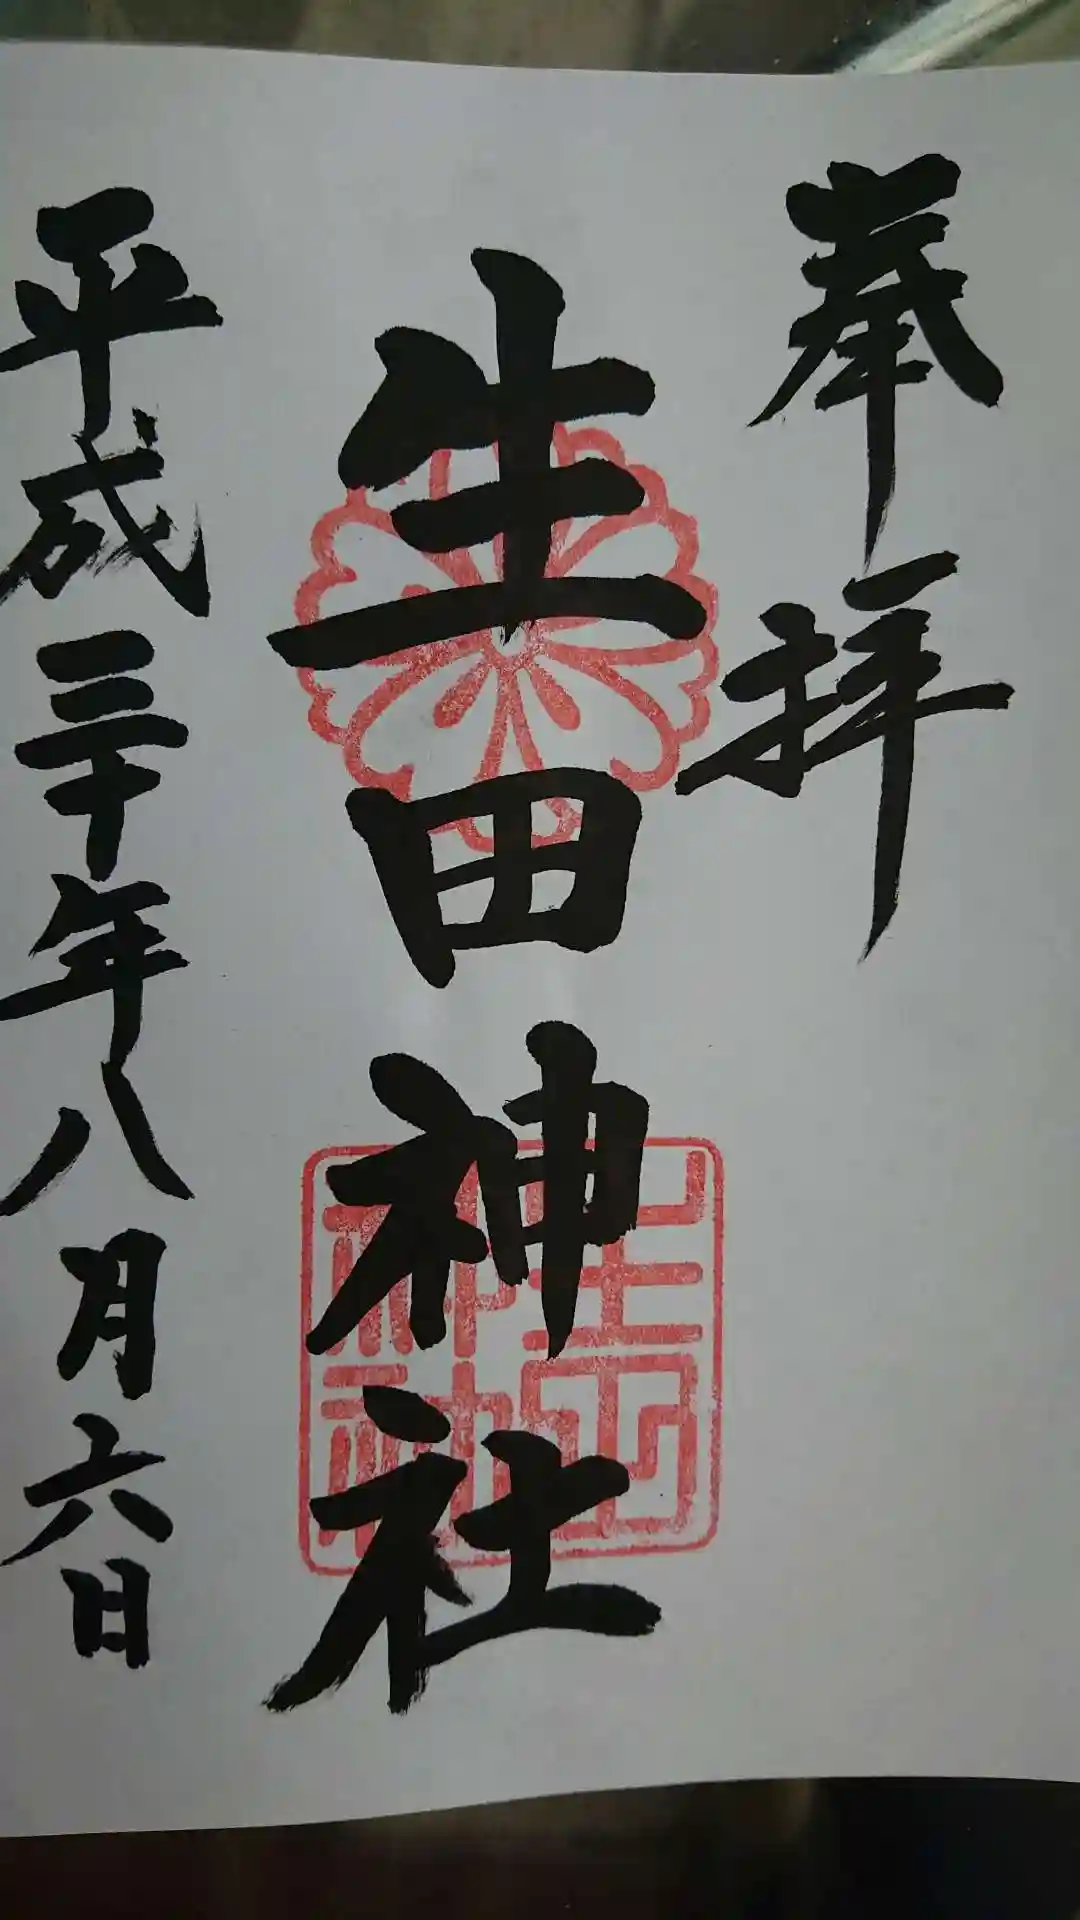 奉拝
生田神社
生田神社
平成三十年八月六日